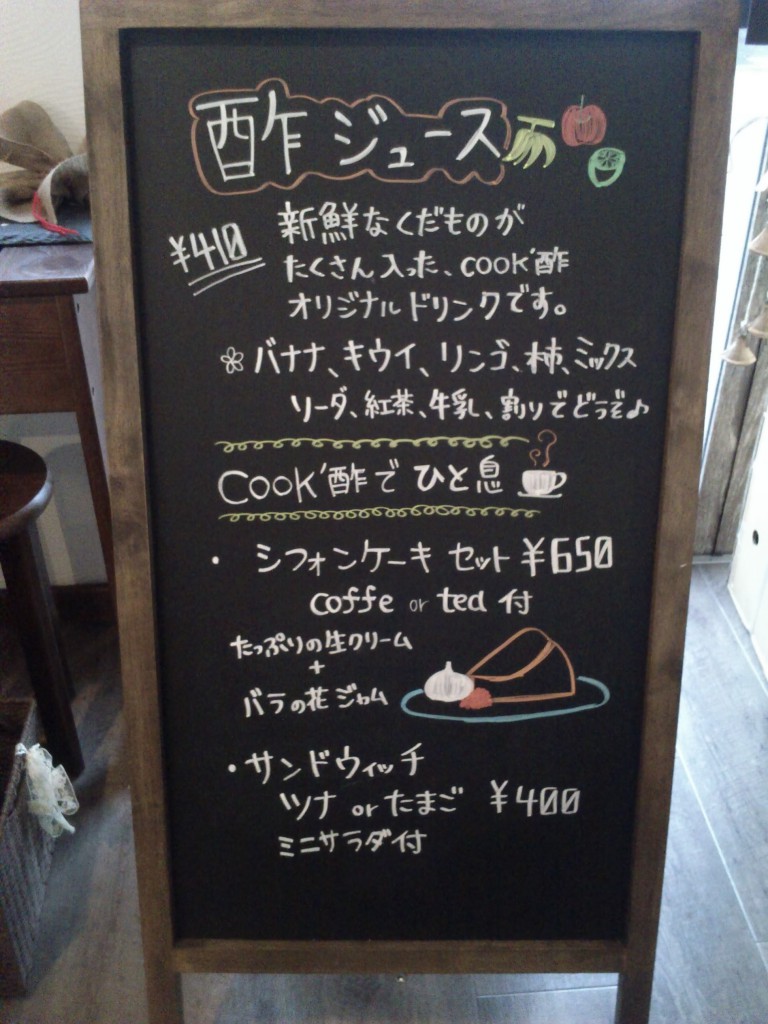 酢ジュース
¥410
新鮮なくだものが
たくさん入った、cook'酢
オリジナルドリンクです。
バナナ、キウイ、リンゴ、柿、ミックス
ソーダ、紅茶、牛乳、割りでどうぞ♪
Cook'酢でひと息
・シフォンケーキセット¥650
coffe or tea 付
たっぷりの生クリーム
+
バラの花ジャム
・サンドウィッチ
ツナ or たまご ¥400
ミニサラダ付